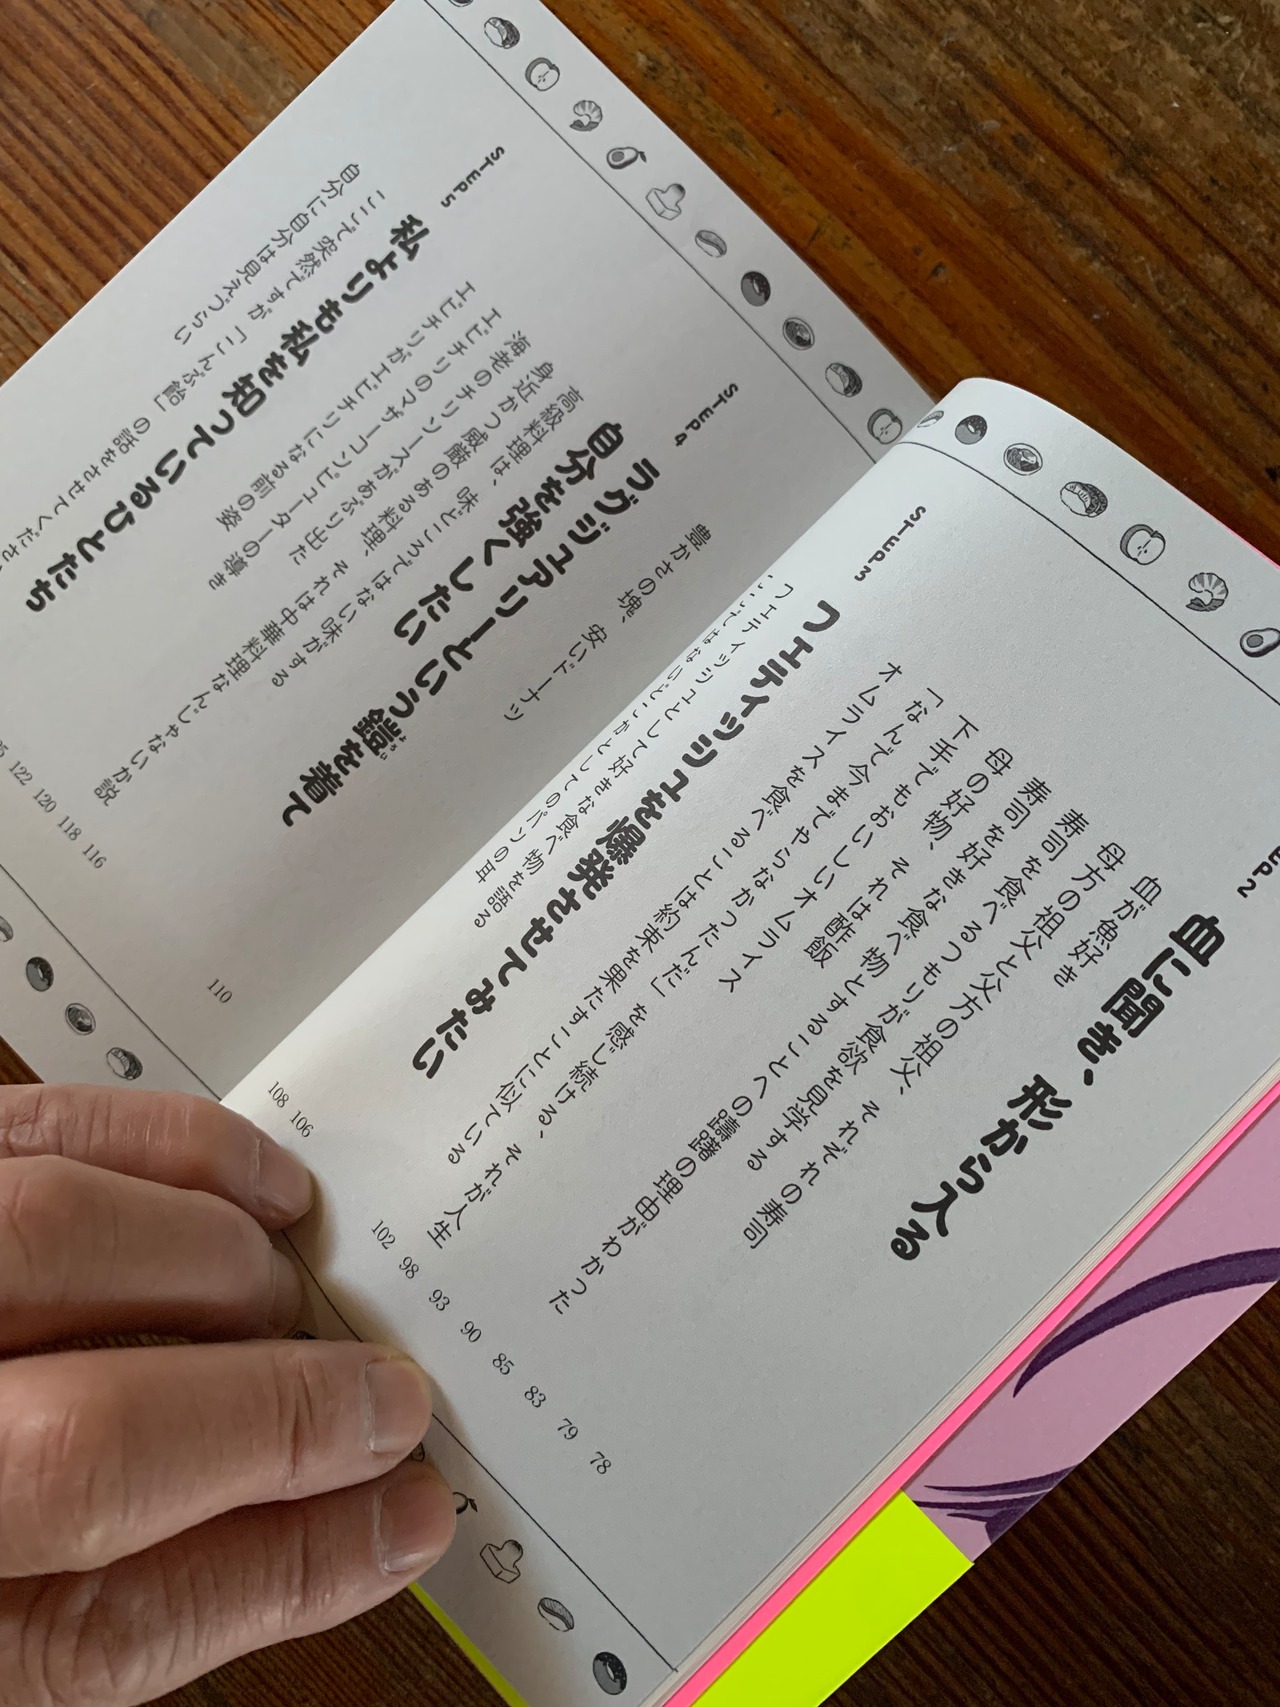 EP 2
血に聞き、形から入る
血が魚好き 78
母方の祖父と父方の祖父、それぞれの寿司 79
寿司を食べるつもりが食欲を見学する 83
寿司を好きな食べ物とすることへの躊躇の理由がわかった 85
母の好物、それは酢飯 90
下手でもおいしいオムライス 93
「なんで今までやらなかったんだ」を感じ続ける、それが人生 98
オムライスを食べることは約束を果たすことに似ている 102
STEP 3
フェティッシュを爆発させてみたい
フェティッシュとして好きな食べ物を語る 106
ここではないどこかとしてのパンの耳 108
豊かさの塊、安いドーナツ 110
STEP 4
ラグジュアリーという鎧を着て
よろい
自分を強くしたい
高級料理は、味どころではない味がする 116
身近かつ威厳のある料理、それは中華料理なんじゃないか説 118
海老のチリソースがあぶり出た 120
エビチリのマザーコンピューターの導き 122
エビチリがエビチリになる前の姿
STEP 5
私よりも私を知っているひとたち
ここで突然ですが「こんぶ飴」の話をさせてくださ
自分に自分は見えづらい